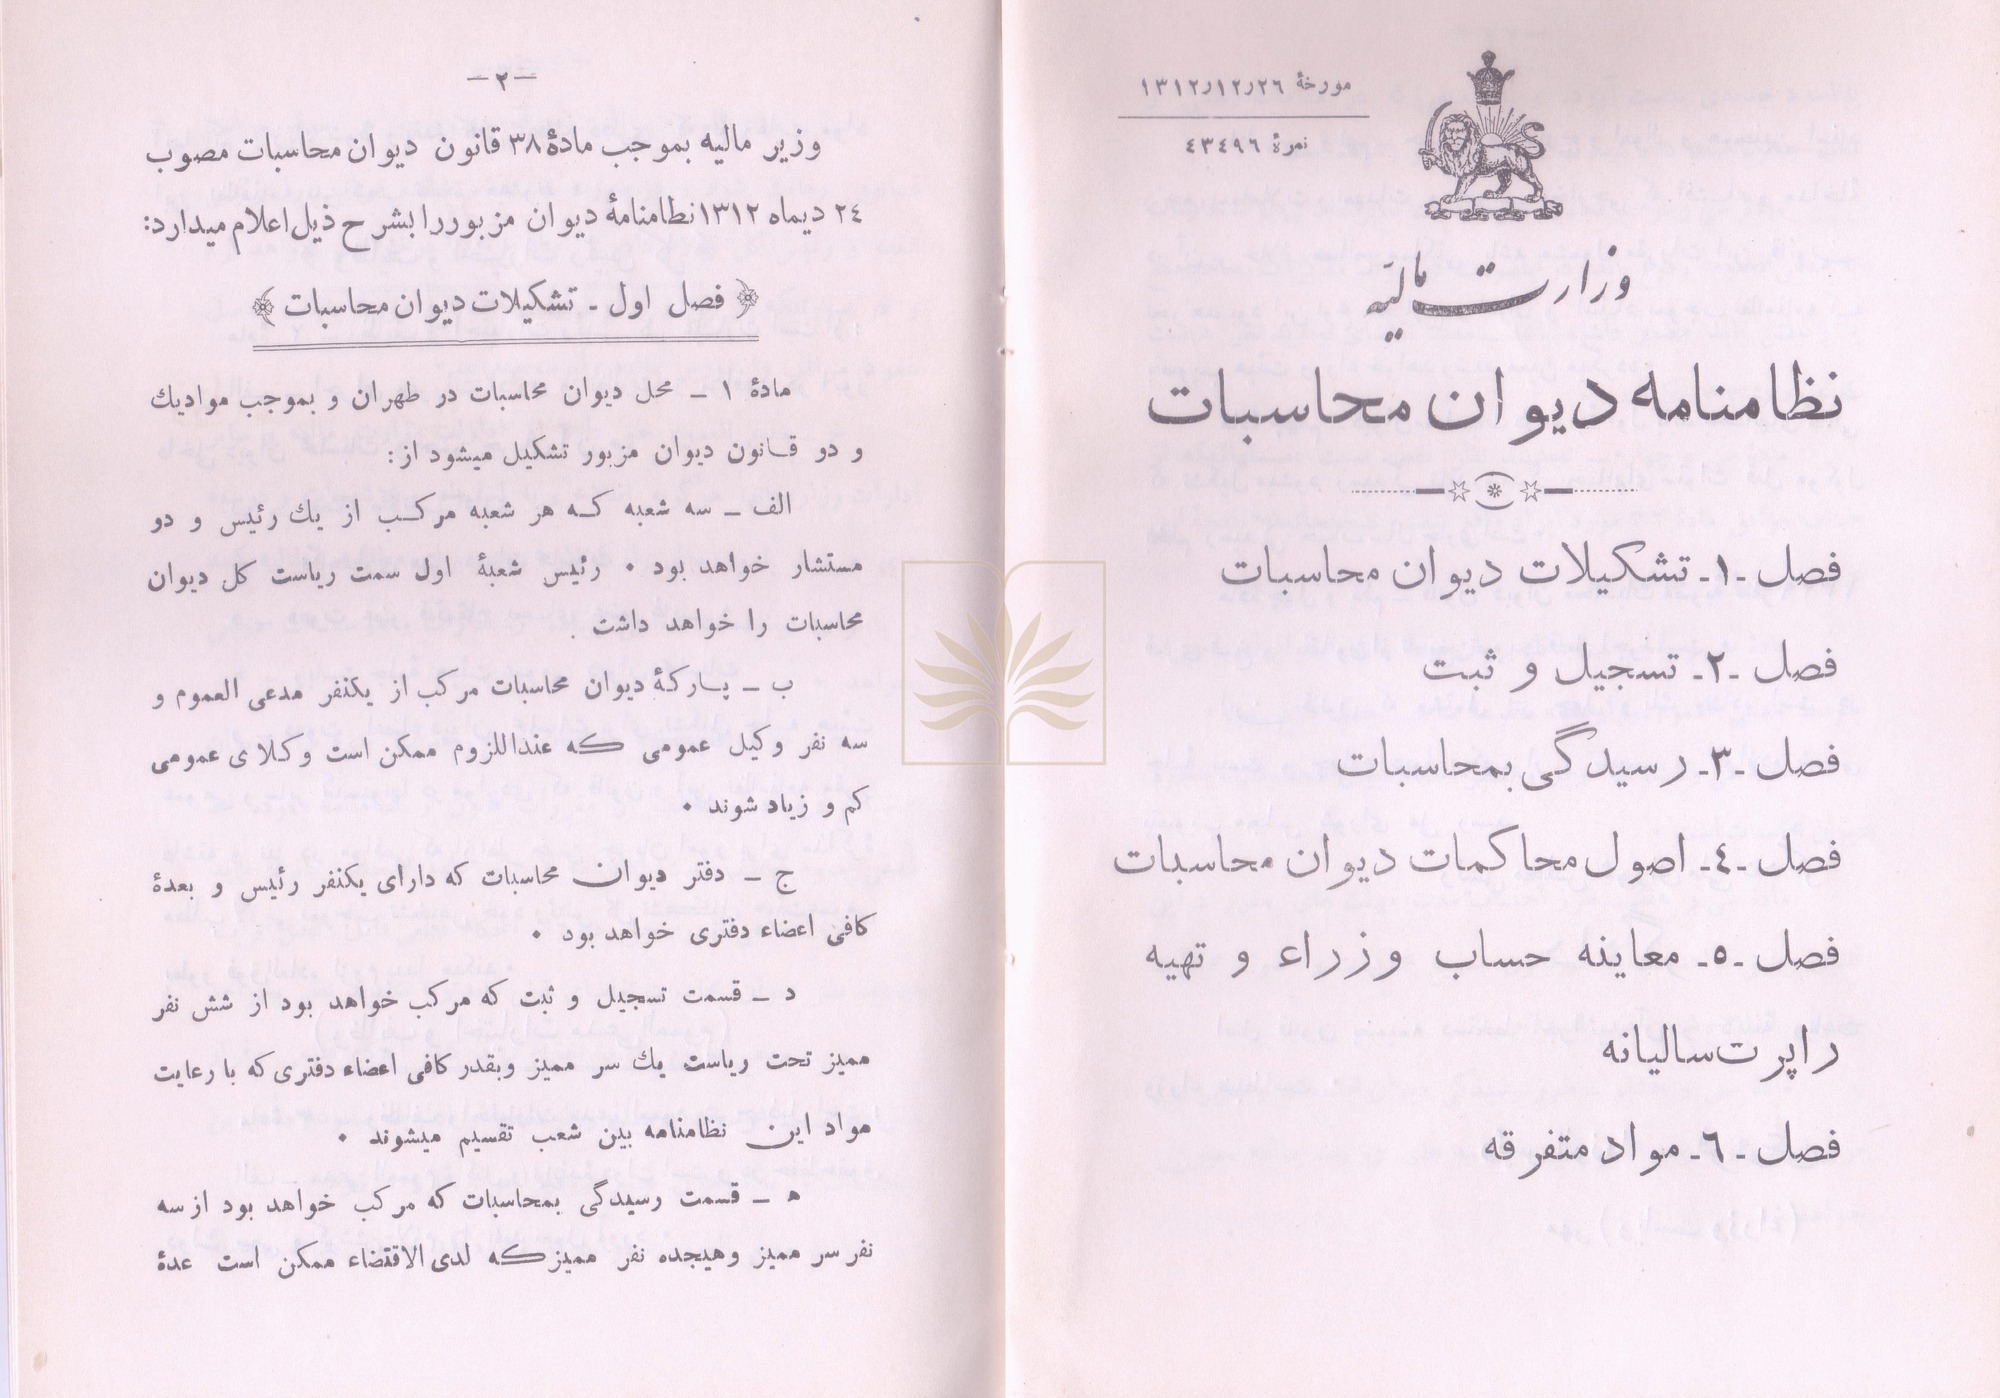 مورخهٔ ۱۳۱۲٫۱۲٫۲۶
نمرهٔ ۴۳۴۹۶
وزارت مالیّه
نظامنامه دیوان محاسبات
فصل -۱- تشکیلات دیوان محاسبات
فصل -۲- تسجیل و ثبت
فصل -۳- رسیدگی بمحاسبات
فصل -۴- اصول محاکمات دیوان محاسبات
فصل -۵- معاینه حساب وزراء و تهیه
راپرت سالیانه
فصل -۶- مواد متفرقه
-۲-
وزیر مالیه بموجب مادهٔ ۳۸ قانون دیوان محاسبات مصوب
۲۴ دیماه ۱۳۱۲ نظامنامهٔ دیوان مزبور را بشرح ذیل اعلام میدارد:
فصل اول - تشکیلات دیوان محاسبات
مادهٔ ۱ - محل دیوان محاسبات در طهران و بموجب مواد یك
و دو قانون دیوان مزبور تشکیل میشود از:
الف - سه شعبه که هر شعبه مرکب از یك رئیس و دو
مستشار خواهد بود. رئیس شعبهٔ اول سمت ریاست کل دیوان
محاسبات را خواهد داشت.
ب - پارکهٔ دیوان محاسبات مرکب از یکنفر مدعی العموم و
سه نفر وکیل عمومی که عنداللزوم ممکن است وکلای عمومی
کم و زیاد شوند.
ج - دفتر دیوان محاسبات که دارای یکنفر رئیس و بعدهٔ
کافی اعضاء دفتری خواهد بود.
د - قسمت تسجیل و ثبت که مرکب خواهد بود از شش نفر
ممیز تحت ریاست یك سر ممیز و بقدر کافی اعضاء دفتری که با رعایت
مواد این نظامنامه بین شعب تقسیم میشوند.
ه - قسمت رسیدگی بمحاسبات که مرکب خواهد بود از سه
نفر سر ممیز و هیجده نفر ممیز که لدی الاقتضاء ممکن است عدهٔ